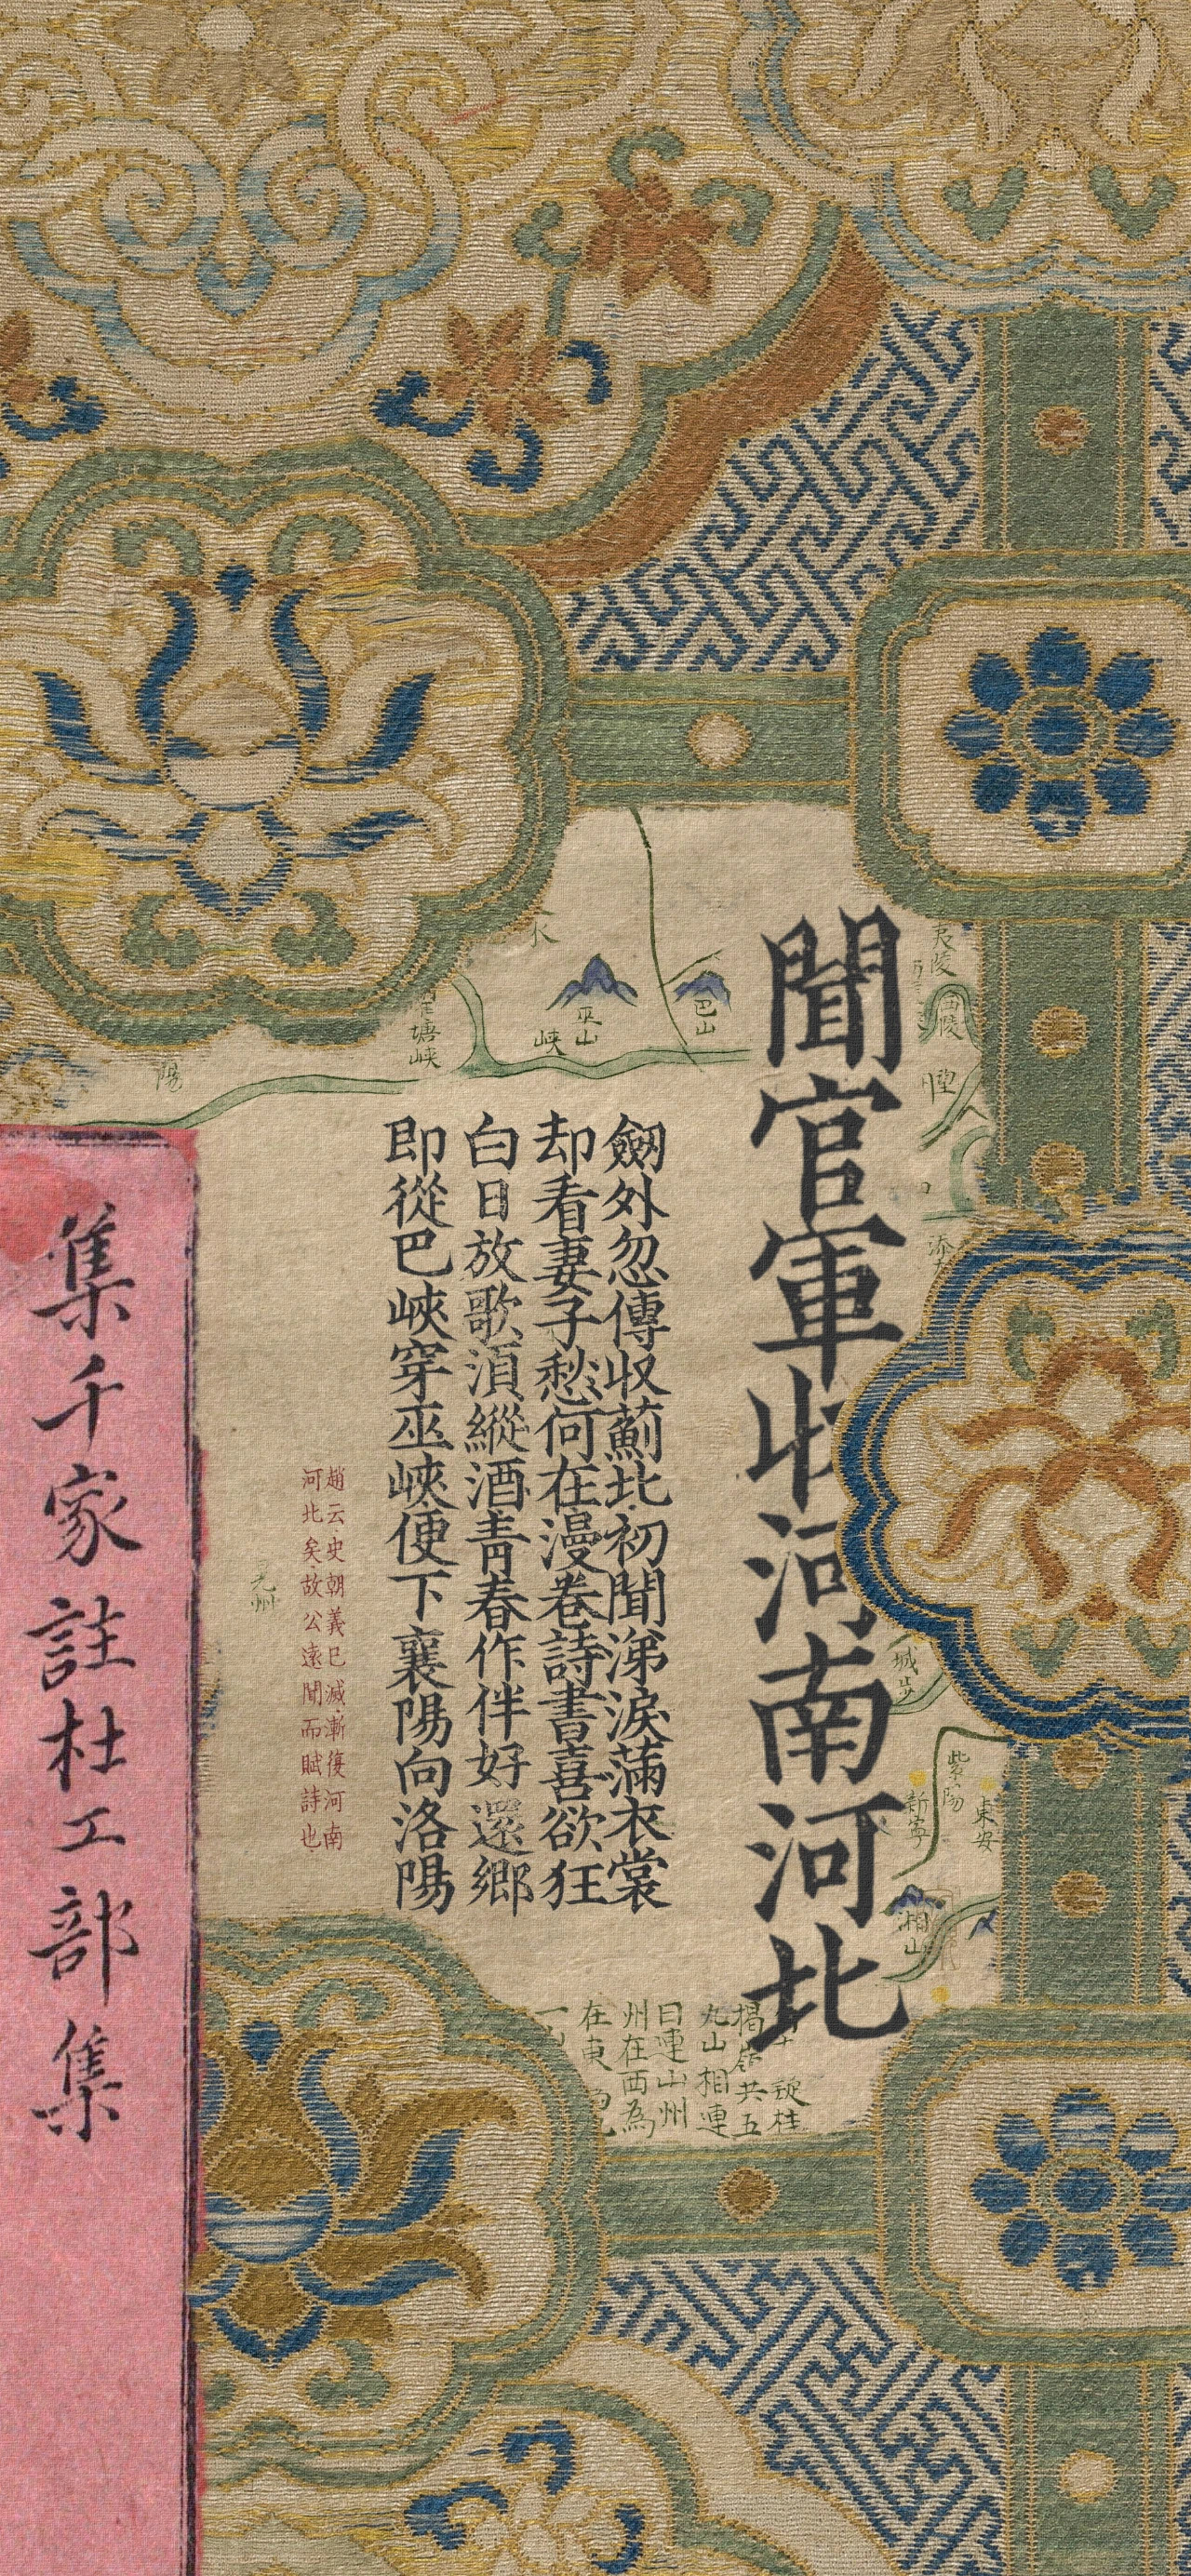 聞官軍收河南河北
劒外忽傳收薊北初聞涕淚滿衣裳
却看妻子愁何在漫卷詩書喜欲狂
白日放歌須縱酒青春作伴好還鄉
即從巴峽穿巫峽便下襄陽向洛陽
趙云史朝義已滅漸復河南
河北矣故公遠聞而賦詩也
集千家註杜工部集
夷陵
巴山
巫山
峽
塘峽
陽
城步
紫陽
新寧
東安
湘山
桂
共五
山相連
曰連山州
州在西為
在東